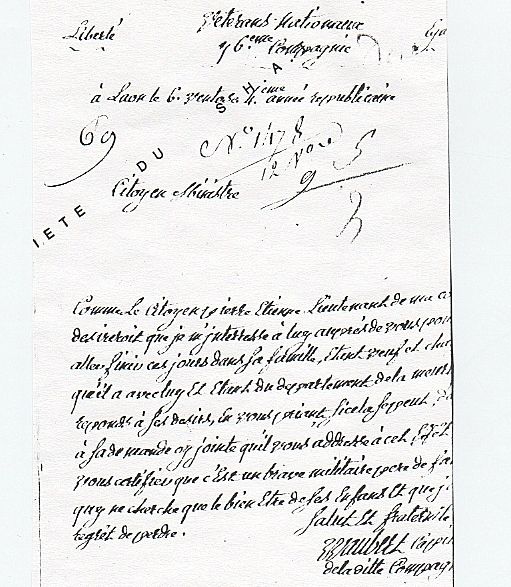 Liberté
Vétérans Nationaux
96.eme Compagnie
à Laon le 6. ventose 4.ieme année republicaine
69
SHA
DU
IETE
N.°
12
9
5
Citoyen Ministre
Comme Le Citoyen pierre Etienne Lieutenant de ma co
desireroit que je m'interesse à luy auprès de vous pour
aller finir ces jours dans sa famille, Etant veuf et cha
qu'il a avec luy Et Etant du departement de la meurt
reponds à ses desirs, En vous priant, si cela se peut, d'a
à sa demande cy jointe qu'il vous addresse à cet Effet
vous certifier que c'Est un brave militaire pere de fa
quy ne cherche que le bien Etre de ses Enfans Et que j
regrèt de perdre.
Salut Et fraternité
Capi
de la ditte Compag